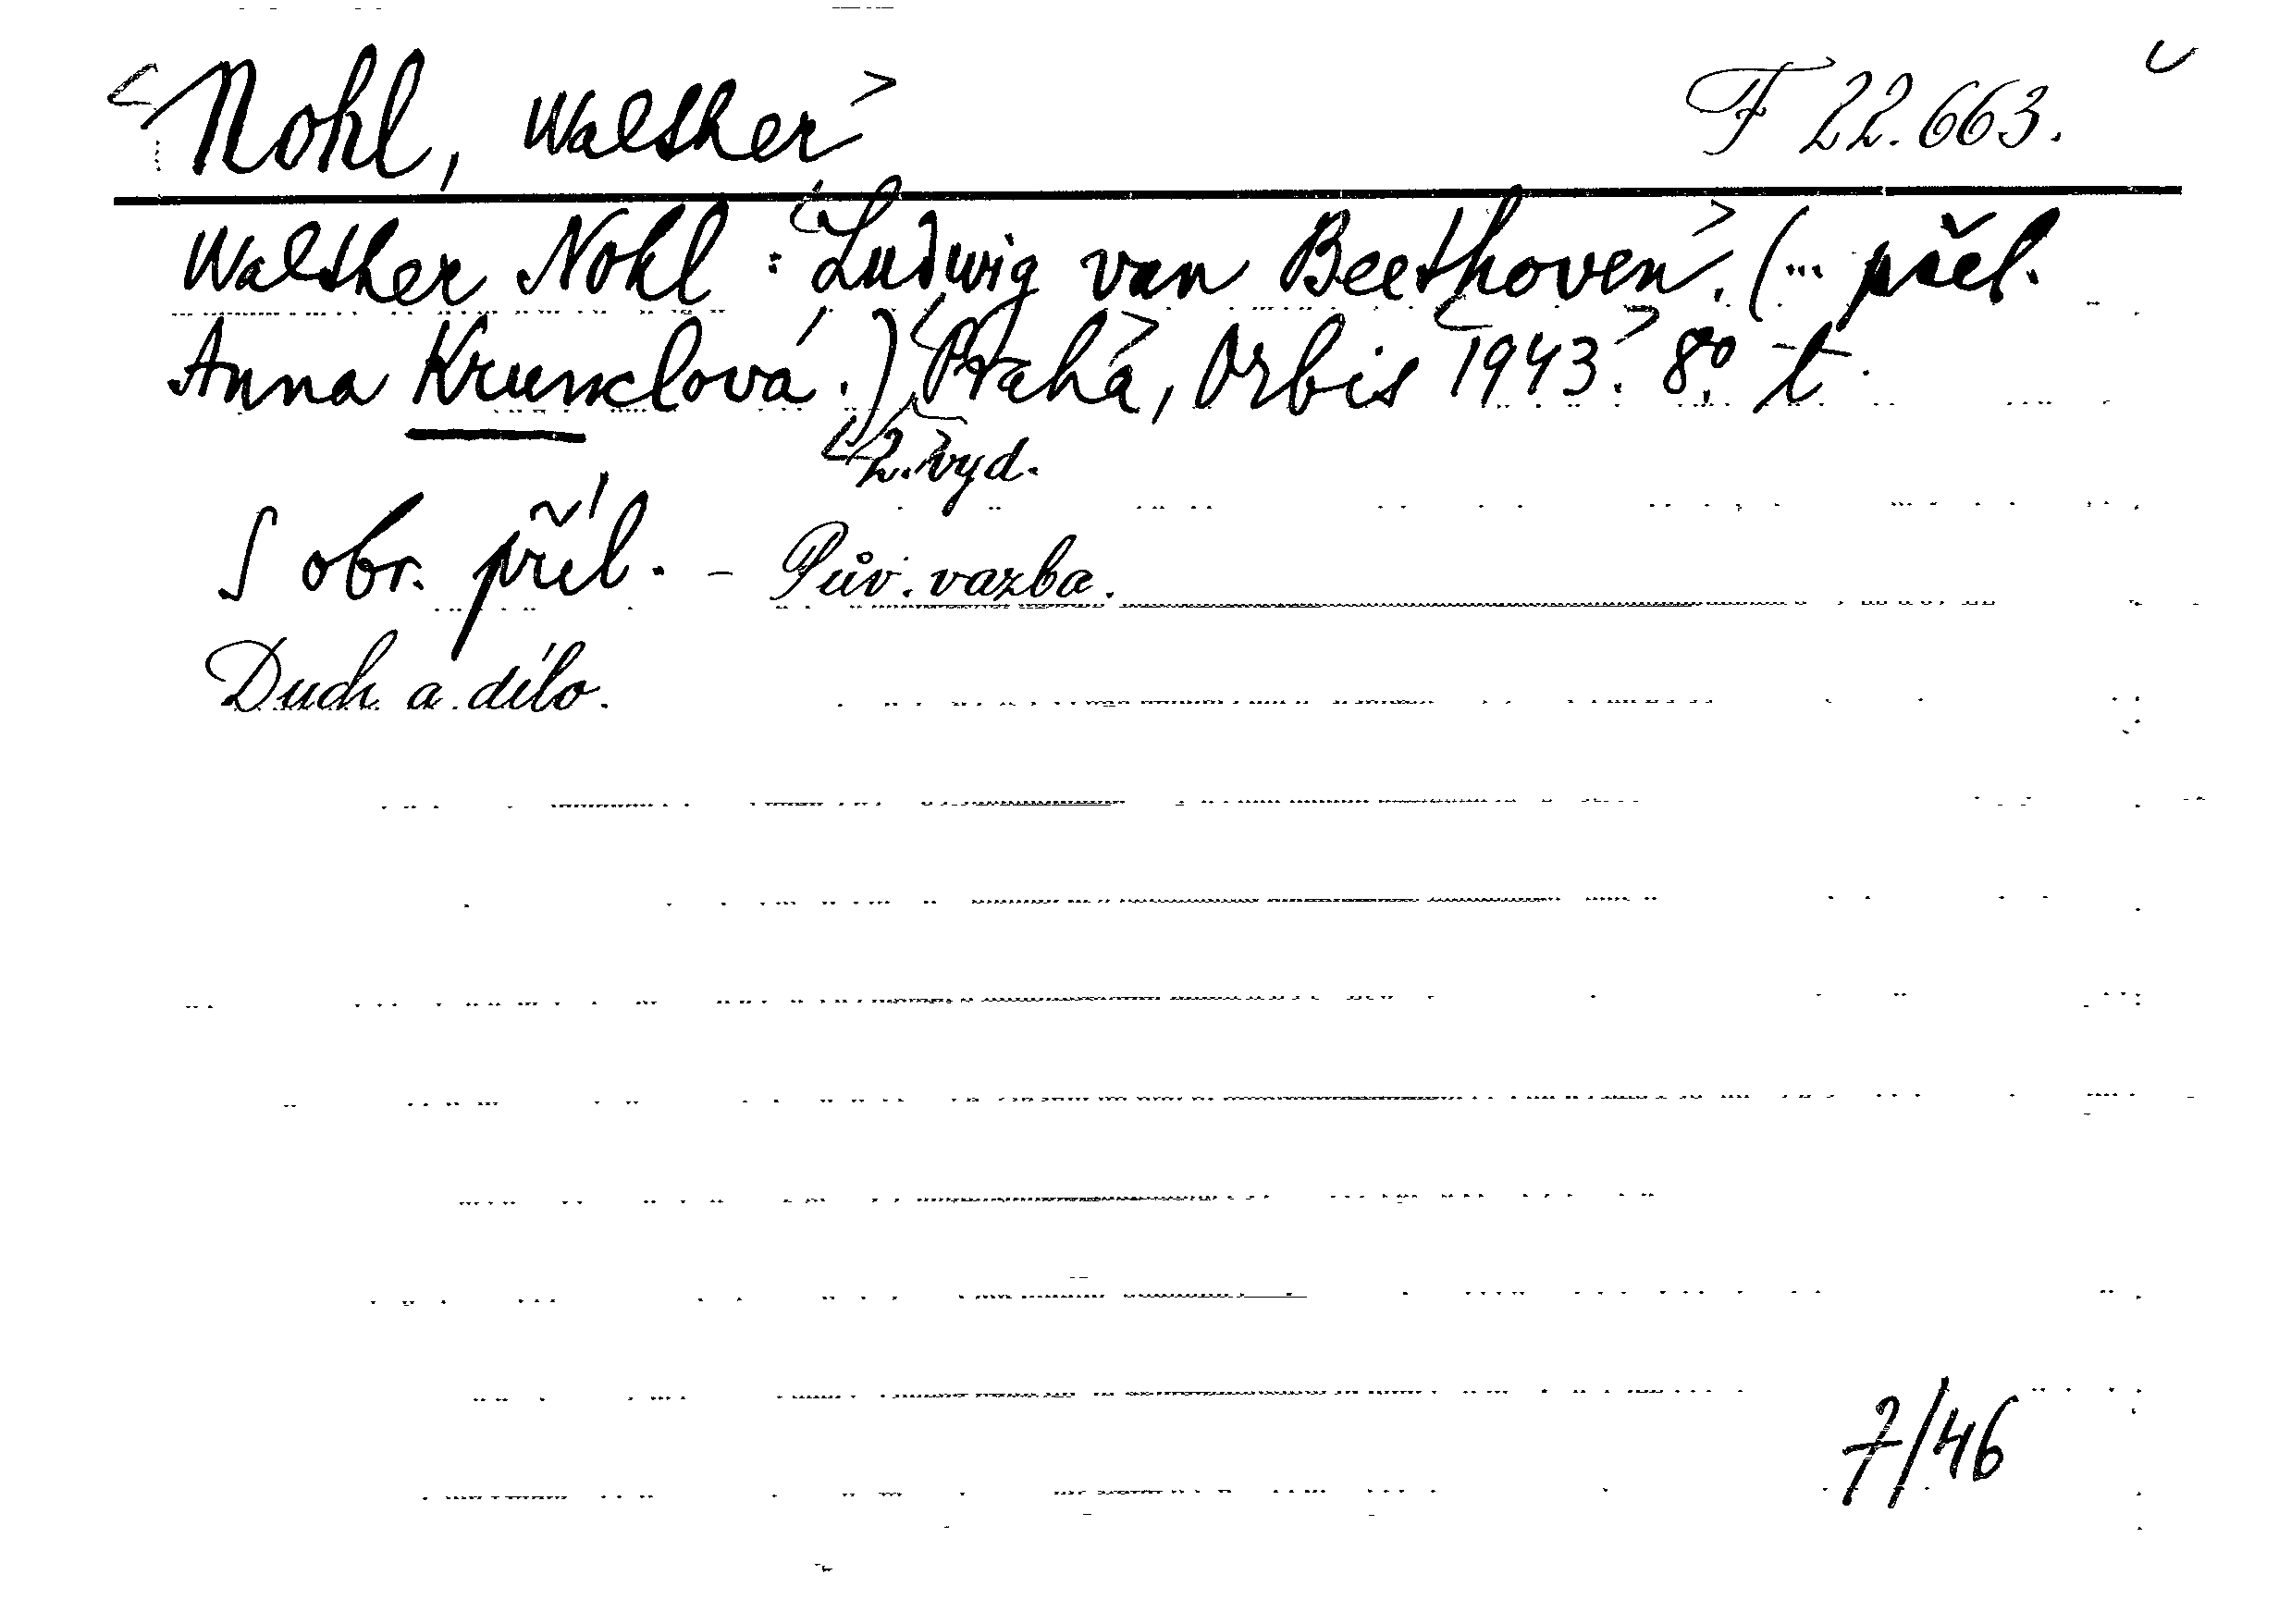 <Nohl, Walther> F 22.663.
Walther Nohl: <Ludwig van Beethoven>. (... přel.
Anna Krumlová.) <Praha>, Orbis <1943>. 8° t.
<2.> vyd.
S obr. příl. - Pův. vazba.
Duch a dílo.
7/46